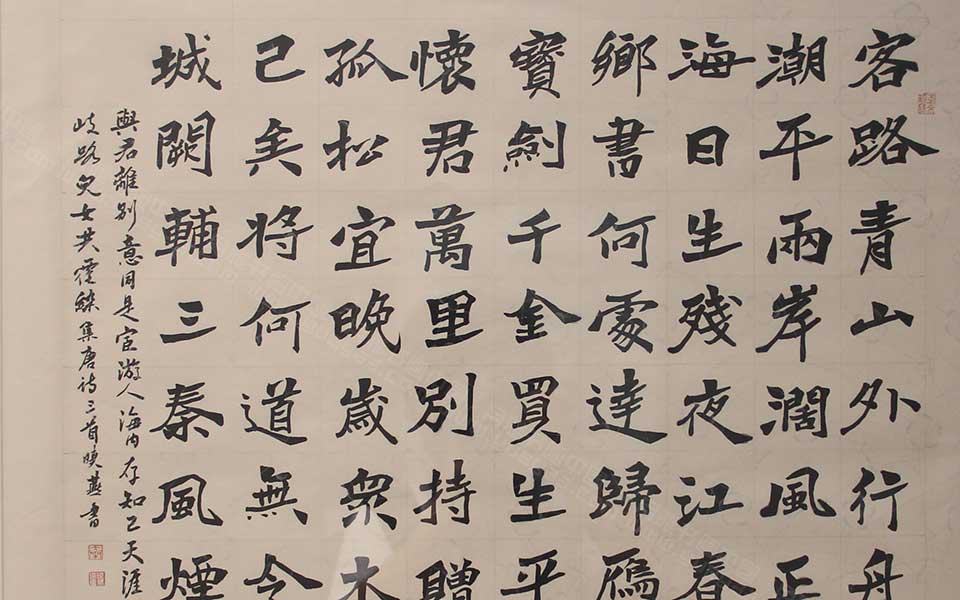 客路青山外行舟
潮平兩岸濶風正
海日生殘夜江春
鄉書何處達歸鴈
寶劍千金買生平
懷君萬里別持贈
孤松宜晚歲衆木
己矣將何道無令
城闕輔三秦風煙
與君離別意同是宦游人海内存知己天涯
岐路兒女共霑 集唐诗三首 燕書